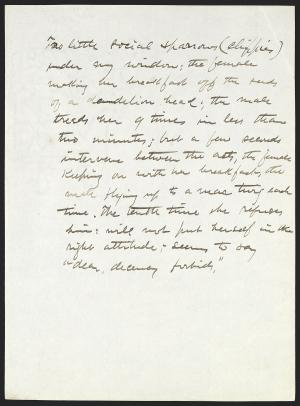 Two little social sparrows (chippies)
under my window; the female
making her breakfast off the seeds
of a dandelion head; the male
treads her 9 times in less than
two minutes; but a few seconds
intervene between the acts, the female
keeping on with her breakfast, the
male flying up to a near twig each
time. The tenth time she refuses
him: will not put herself in the
right attitude; - seems to say
"dear, decency forbids,"